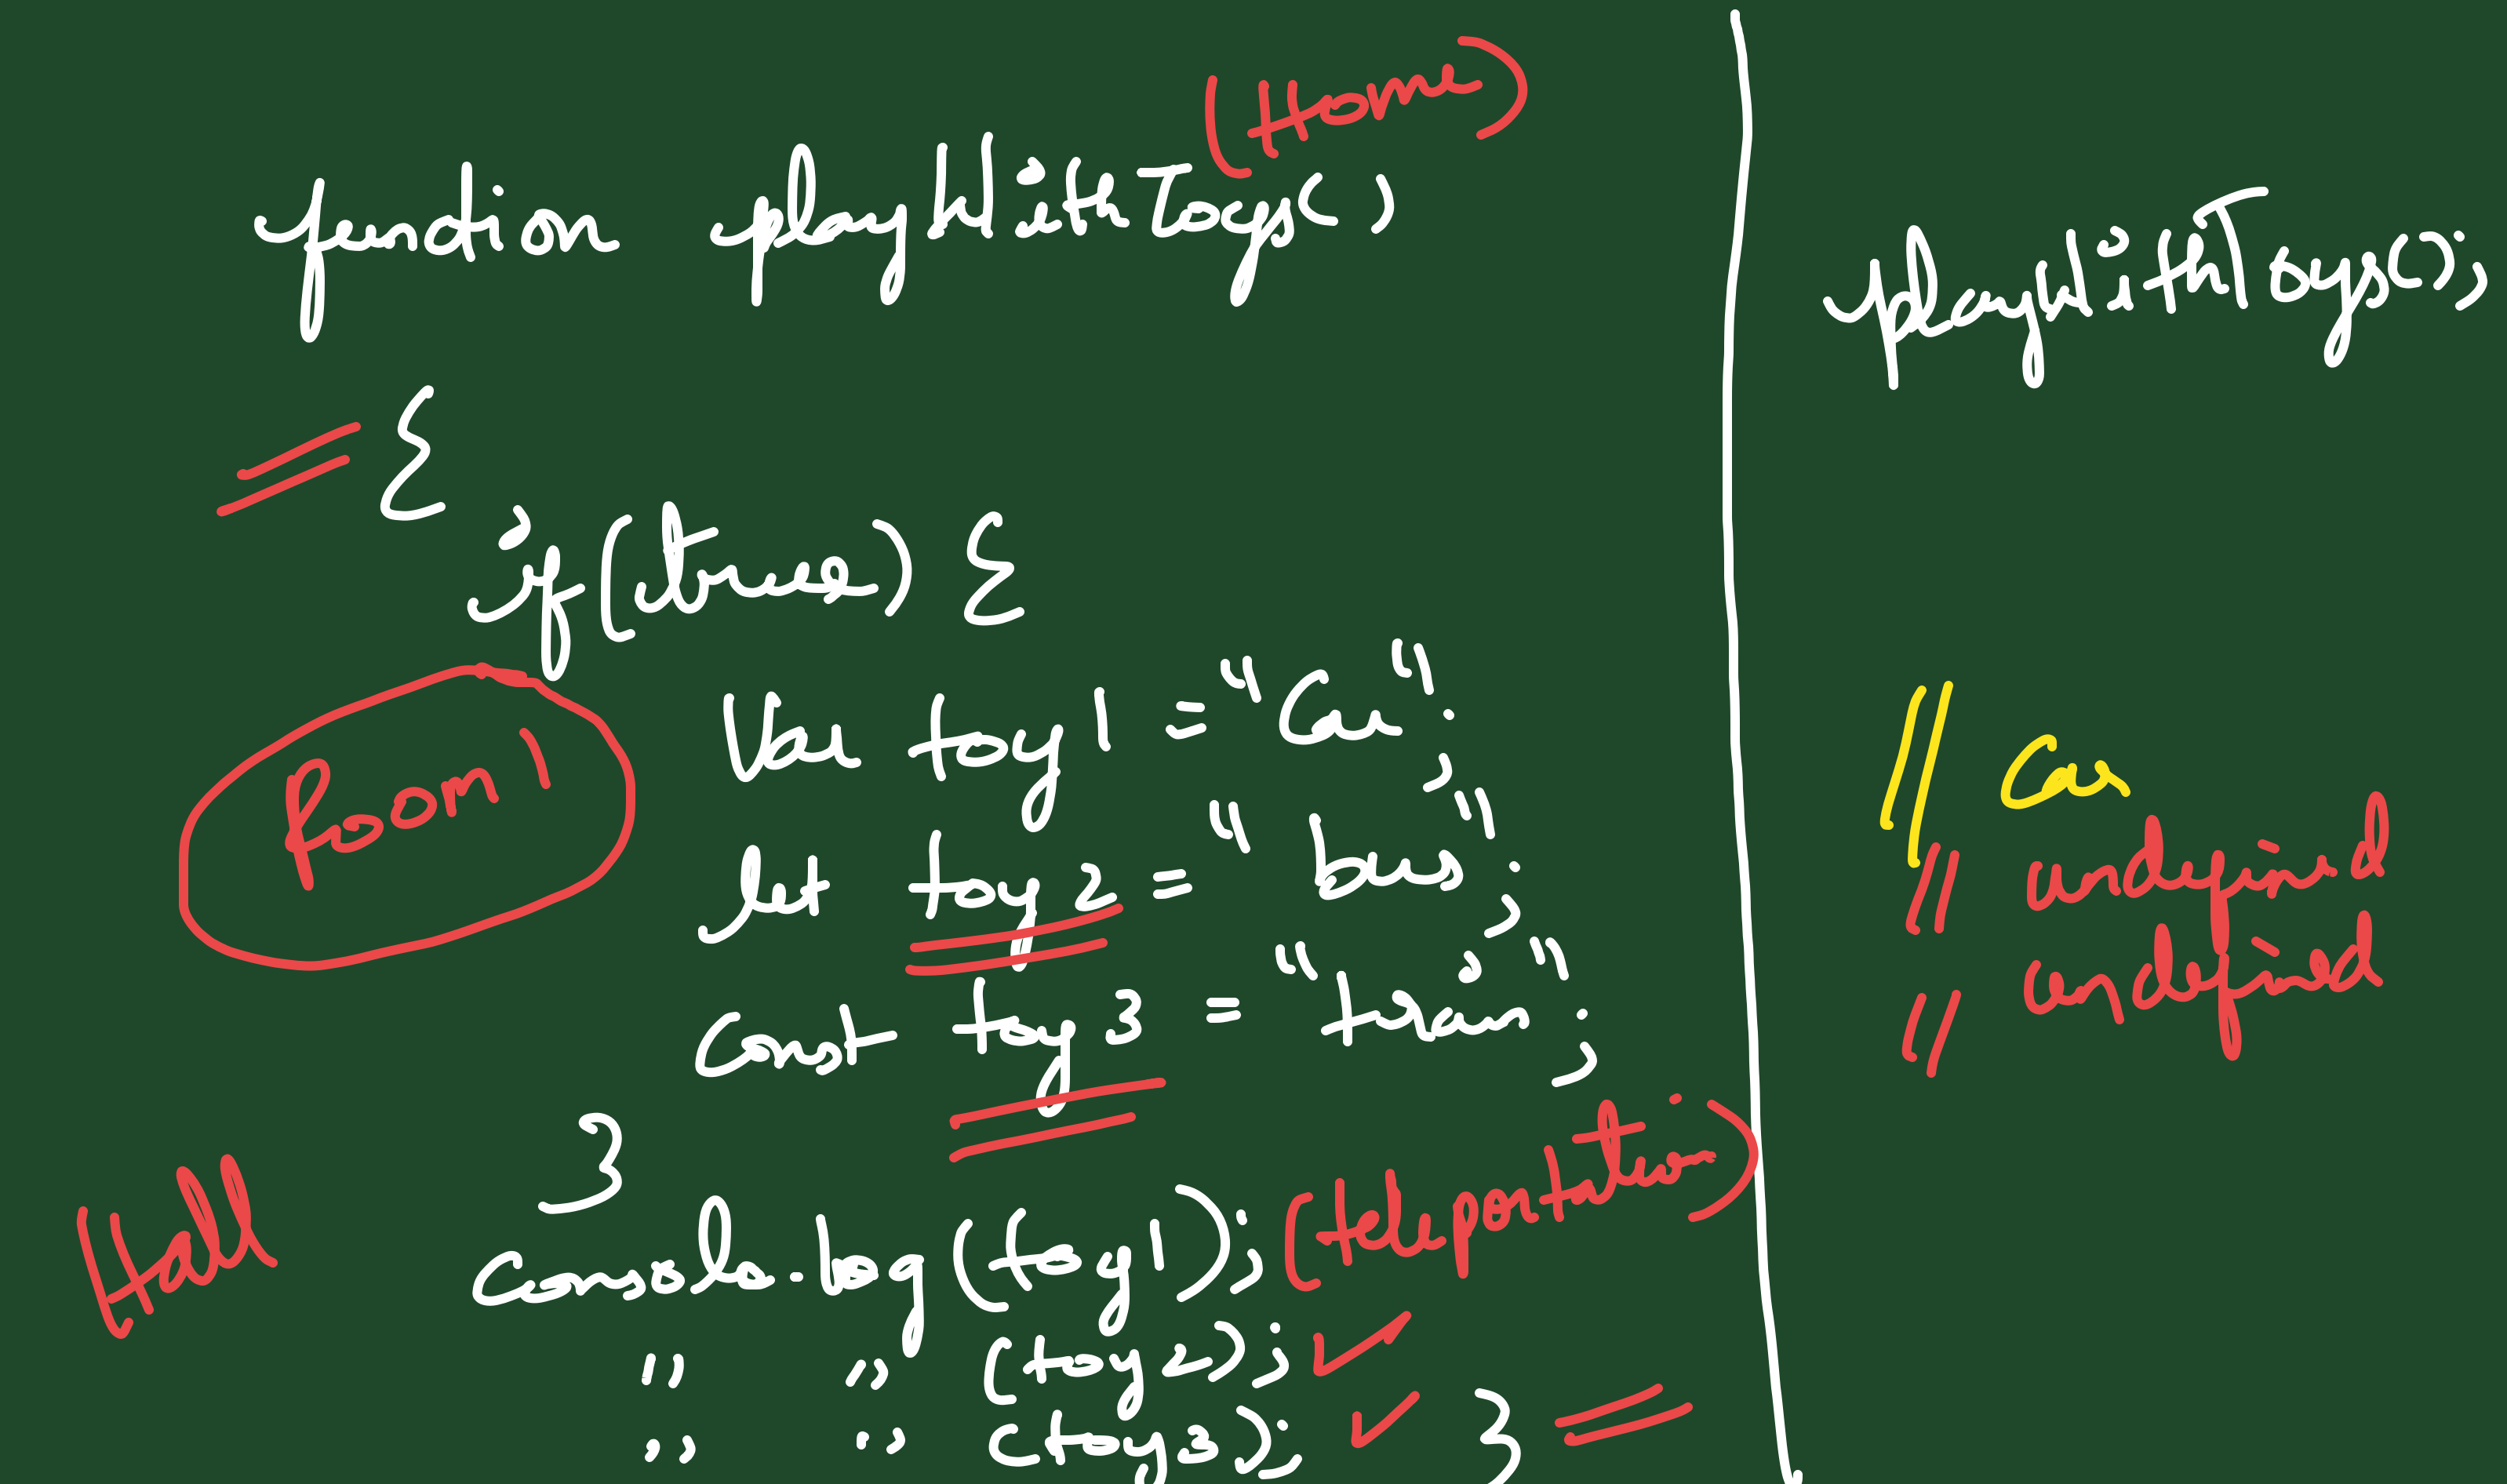 (Home)
function playWithToys()
{
if(true) {
Room 1
Var toy1 = "Car";
let toy2 = "bus";
const toy3 = "train";
}
Hall
console.log(toy1); (teleportation)
" " (toy2); ✓
" " (toy3); ✓ }
playWithToys();
// Car
// undefined
// undefined